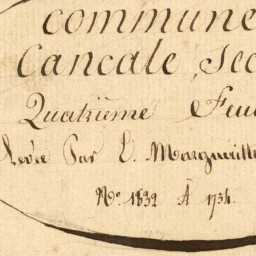 commune
Cancale, Sec
Quatrième Feui
Levée Par L. Margueritte
No. 1832 A 1734.